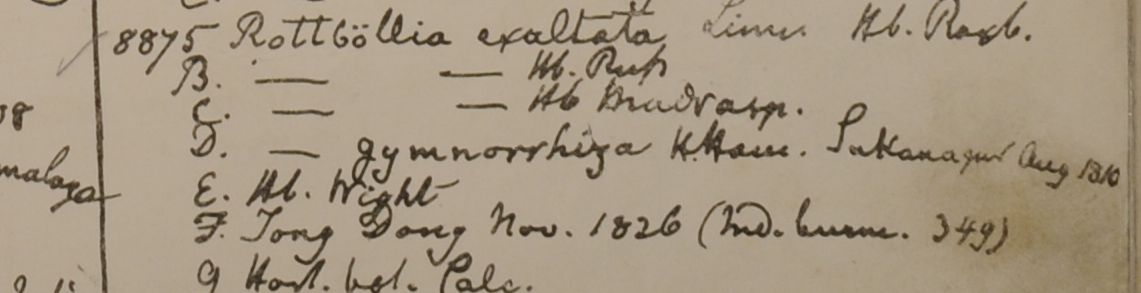 8875 Rottböllia exaltata Linn. Hb. Roxb.
B. — — Hb. Russ
C. — — Hb Madrasp.
D. — gymnorrhiza H.Ham. Aug 1810
malaya
E. Hb. Wight
F. Tong Dong Nov. 1826 (Ind. burm. 349)
G Hort. bot. Calc.